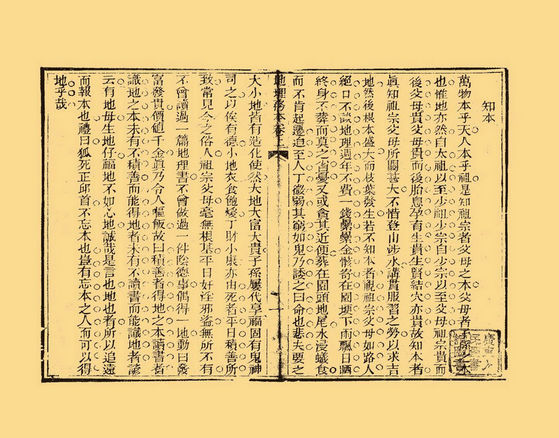 知本
萬物本乎天人本乎祖是知祖宗者父母之本父母者子孫之本
也惟地亦然自太祖以至少祖少宗自少宗以至父母祖宗貴而
後父母貴父母貴而後胎息孕育生貴生賢結穴亦貴故知本者
眞知祖宗父母所關甚大不惜登山涉水講貫服習之勞以求吉
地然後根本盛大而枝葉發生若不知本者視祖宗父母如路人
絕口不談地理週年不費一錢纍纍金骸寄在園塘下雨飄日晒
終身不葬而莫之省憂又或貪其近便葬在園頭地尾水浸蟻食
而不肯起遷迫至人丁微弱其窮如鬼乃諉之曰命也悲夫要之
地理知本卷二
大小地皆有造化使然大地大富大貴子孫屢代享福固有鬼神
司之以俟有德小地衣食飽煖丁財小康亦由死者平日積善所
致常見今之俗人祖宗父母毫無根基平日奸淫邪盜無所不有
不曾讀過一篇地理書不曾做過一件陰德事偶得一地動曰發
富發貴價値千金眞乃令人噴飯故曰積善者得地之本讀書者
識地之本未有不積善而能得地者未有不讀書而能識地者諺
云有地母生地仔緬地不如心地誠哉是言也地也者所以追遠
而報本也禮曰狐死正邱首不忘本也豈有忘本之人而可以得
地乎哉